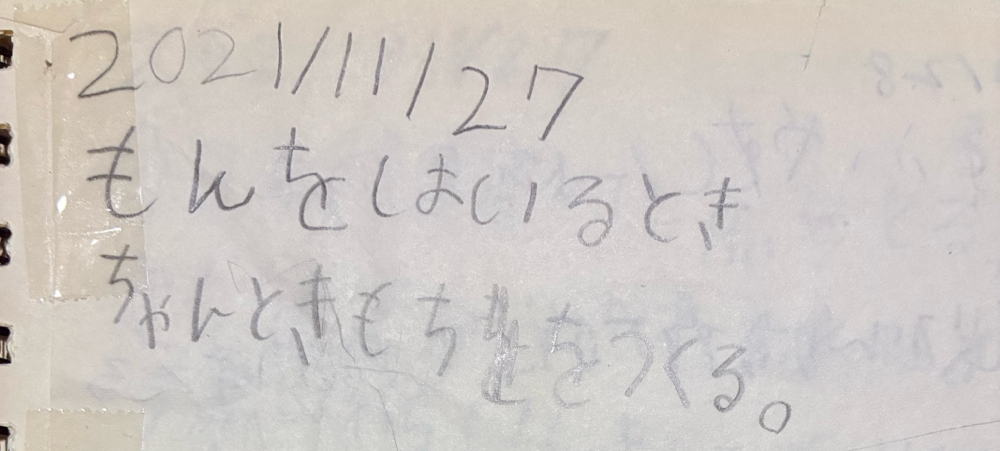 2021/11/27
もんをはいるとき
ちゃんときもちをつくる。